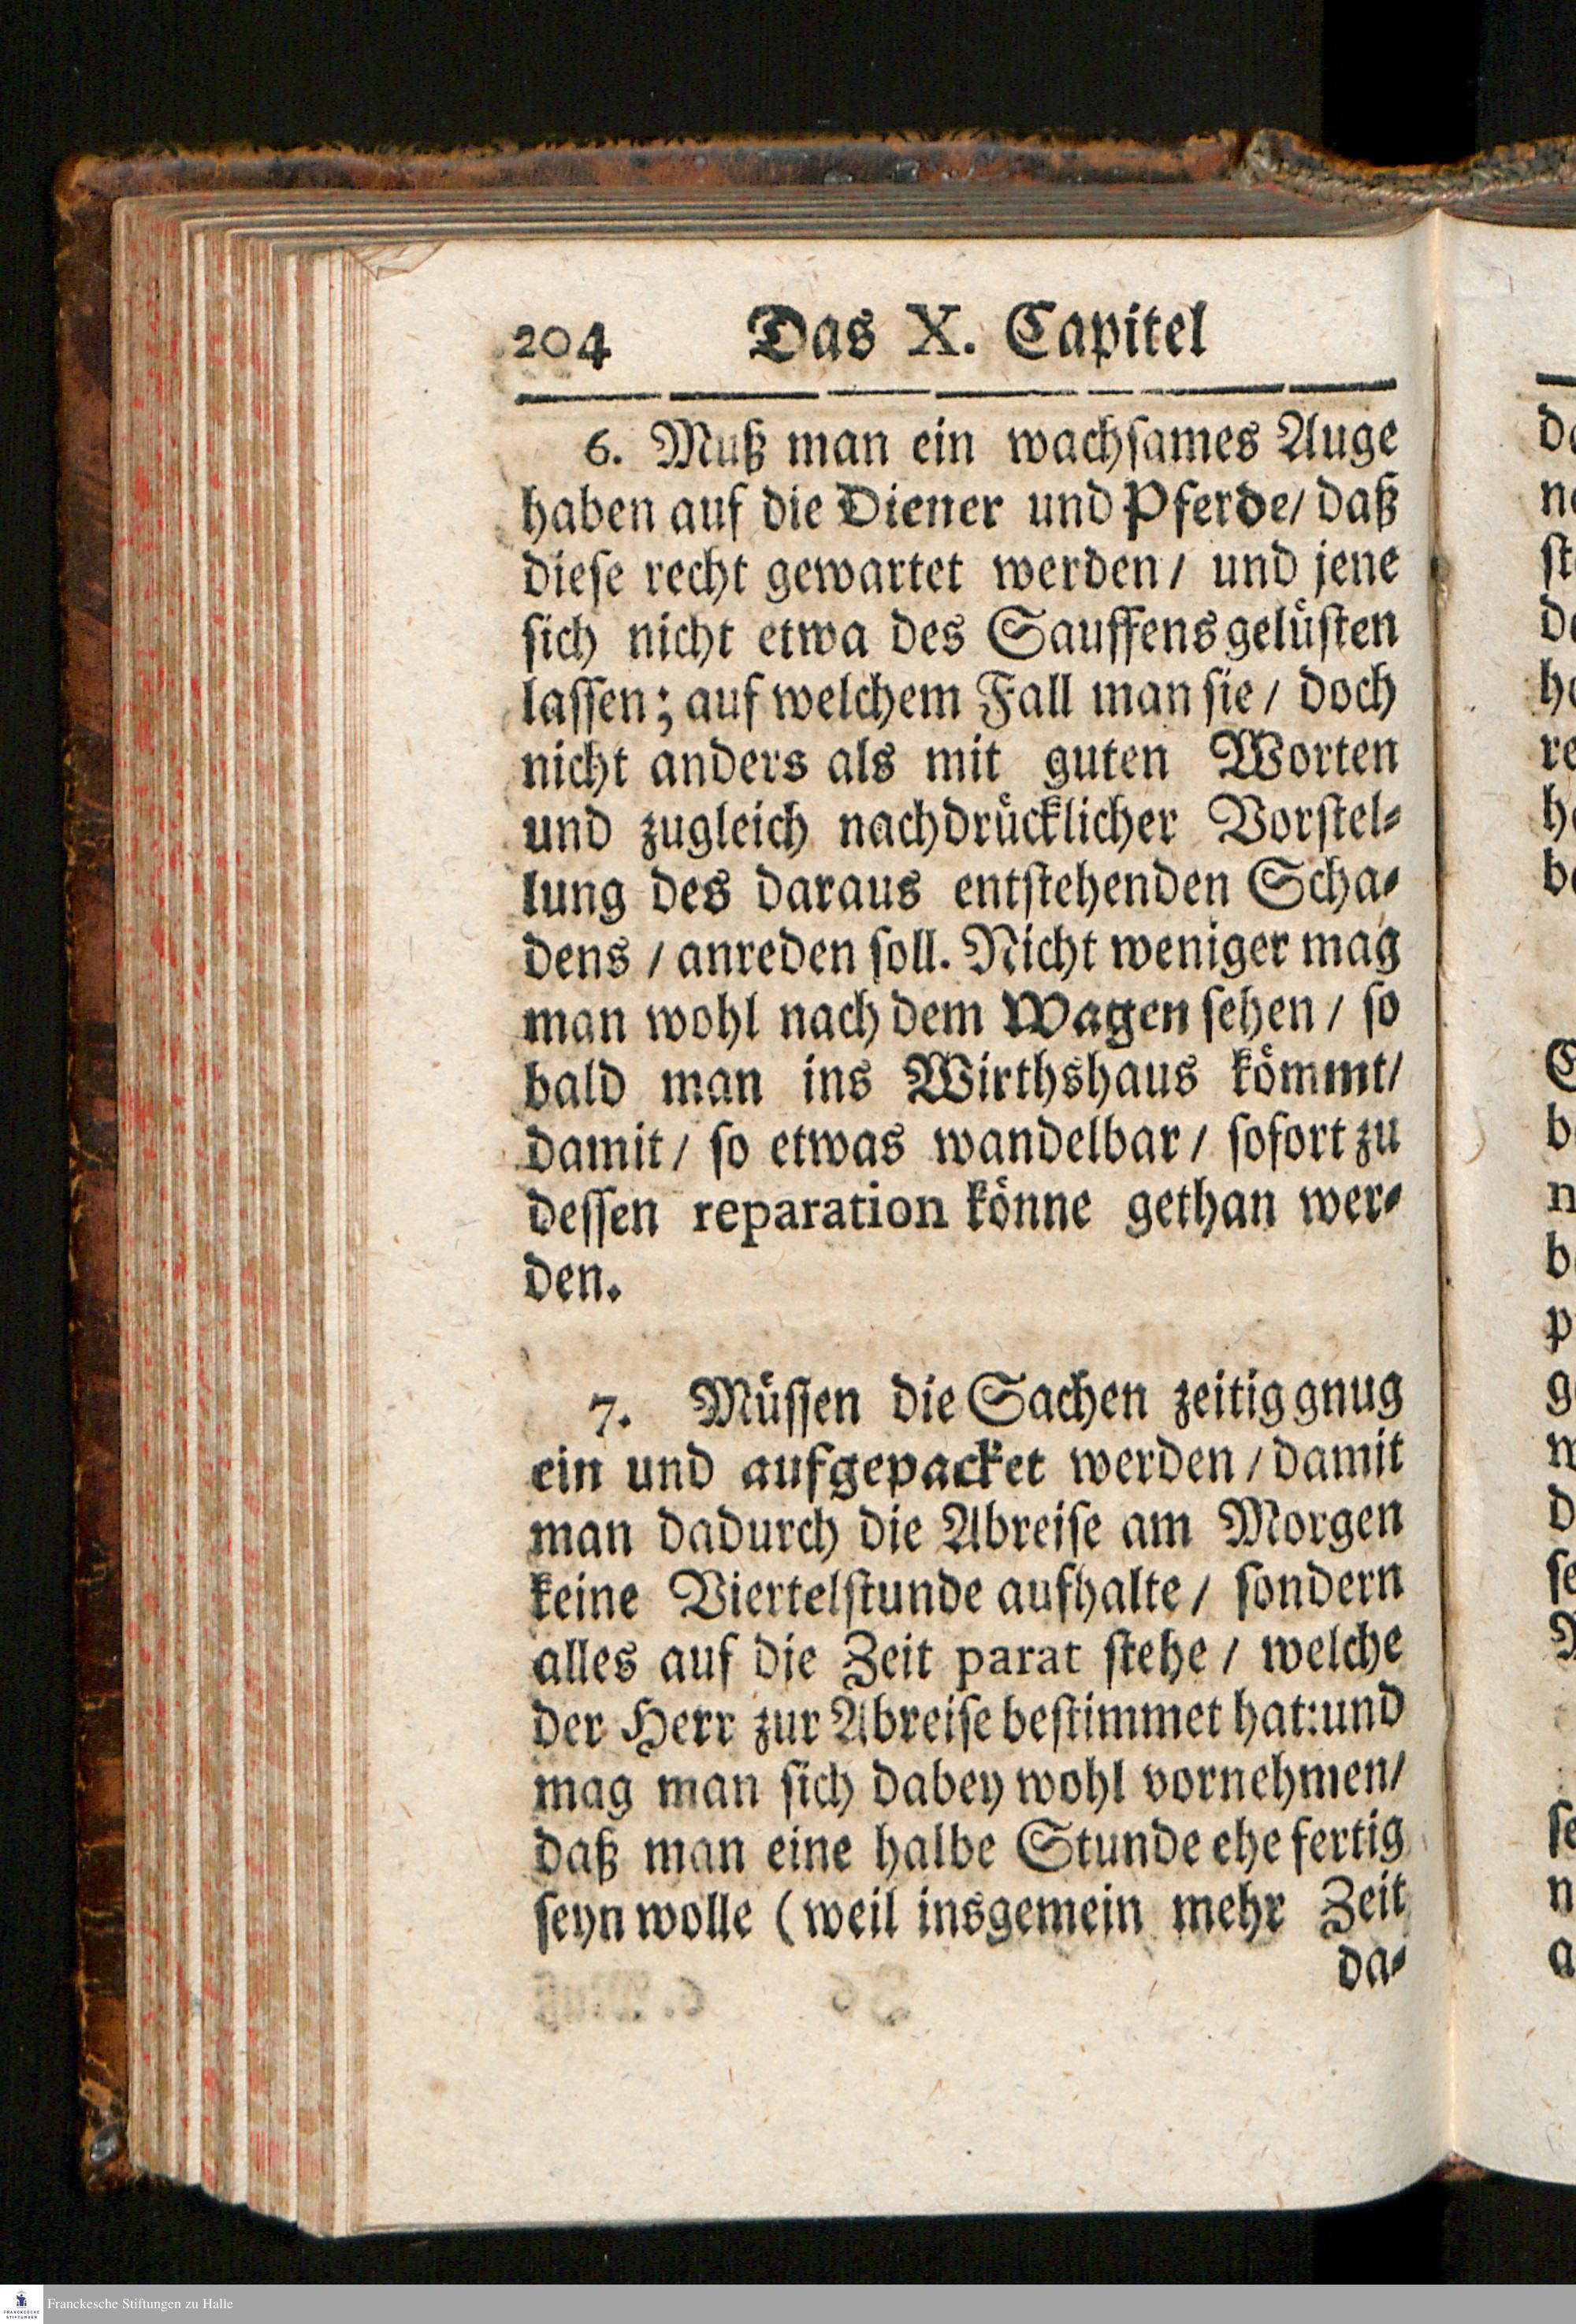 204 Das X. Capitel
6. Muß man ein wachſames Auge
haben auf die Diener und Pferde/ daß
dieſe recht gewartet werden/ und jene
ſich nicht etwa des Sauffens gelüſten
laſſen; auf welchem Fall man ſie/ doch
nicht anders als mit guten Worten
und zugleich nachdrücklicher Vorſtel-
lung des daraus entſtehenden Scha-
dens / anreden ſoll. Nicht weniger mag
man wohl nach dem Wagen ſehen / ſo
bald man ins Wirthshaus kömmt/
damit/ ſo etwas wandelbar/ ſofort zu
deſſen reparation könne gethan wer-
den.
7. Müſſen die Sachen zeitig gnug
ein und aufgepacket werden / damit
man dadurch die Abreiſe am Morgen
keine Viertelſtunde aufhalte/ ſondern
alles auf die Zeit parat ſtehe / welche
der Herr zur Abreiſe beſtimmet hat: und
mag man ſich dabey wohl vornehmen/
daß man eine halbe Stunde ehe fertig
ſeyn wolle (weil insgemein mehr Zeit
da-
Franckesche Stiftungen zu Halle